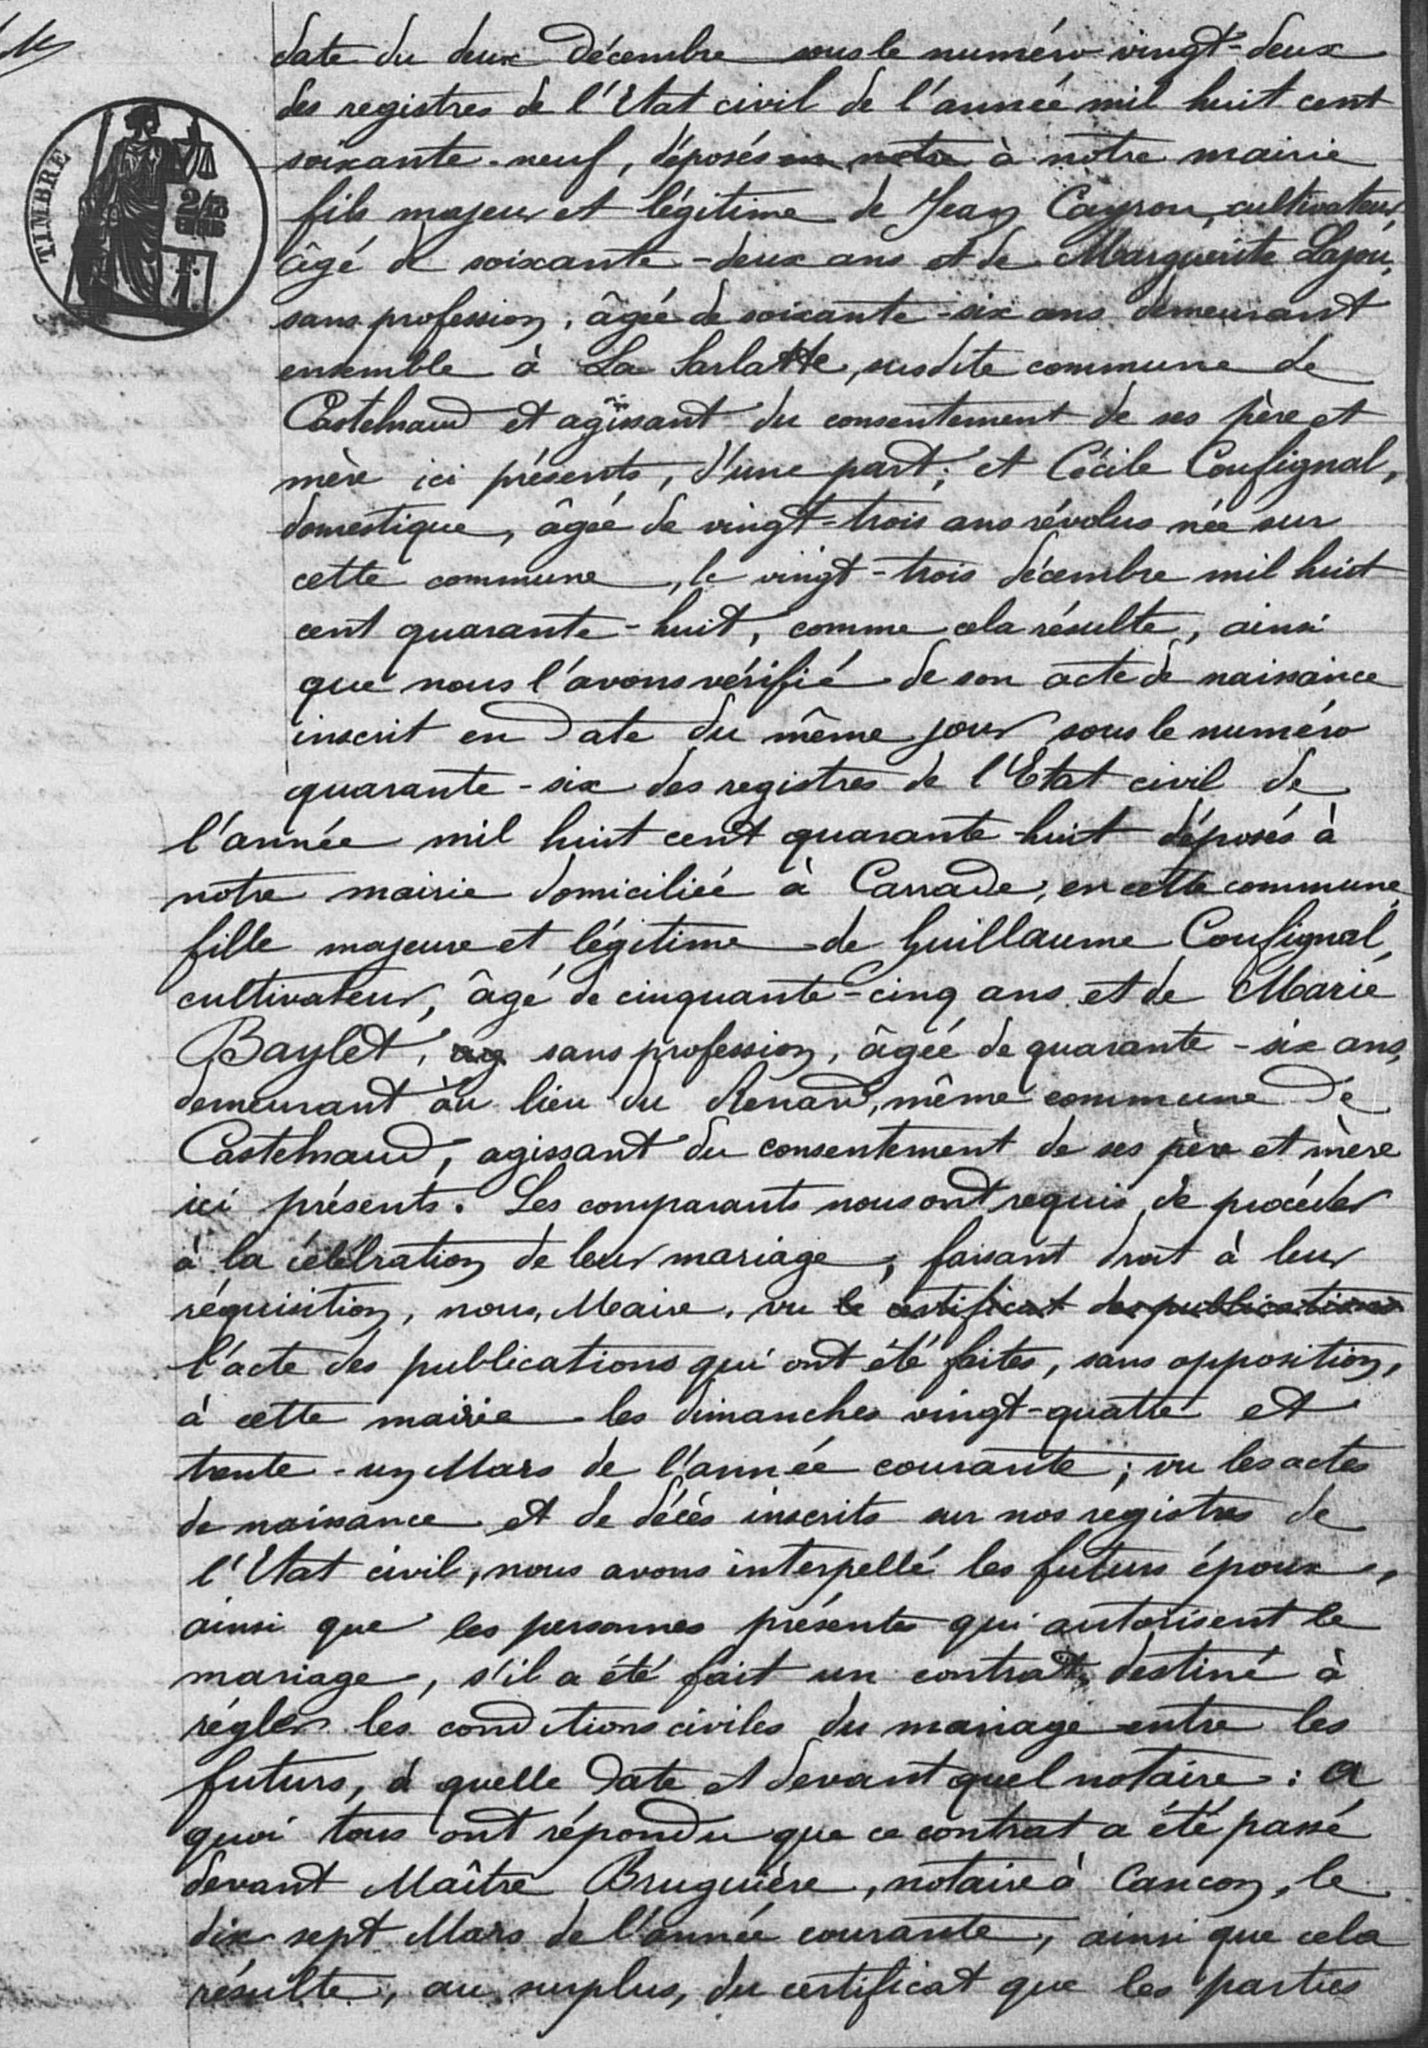 date du deux Décembre sous le numéro vingt-deux
des registres de l'Etat civil de l'année mil huit cent
soixante-neuf, déposés en notre à notre mairie
fils majeur et légitime de Jean Cayrou, cultivateur,
âgé de soixante-deux ans et de Marguerite Lajou,
sans profession, âgée de soixante-six ans demeurant
ensemble à La Sarlatte, susdite commune de
Castelnaud et agissant du consentement de ses père et
mère ici présents, d'une part; et Cécile Coufignal,
domestique, âgée de vingt-trois ans révolus née sur
cette commune, le vingt-trois décembre mil huit
cent quarante-huit, comme cela résulte, ainsi
que nous l'avons vérifié de son acte de naissance
inscrit en Date du même jour sous le numéro
quarante-six des registres de l'Etat civil de
l'année mil huit cent quarante-huit déposés à
notre mairie domiciliée à Carrade, en cette commune,
fille majeure et légitime de Guillaume Coufignal,
cultivateur, âgé de cinquante-cinq ans et de Marie
Baylet, ag sans profession, âgée de quarante-six ans,
demeurant au lieu du Renard, même commune De
Castelnaud, agissant du consentement de ses père et mère
ici présents. Les comparants nous ont requis de procéder
à la célébration de leur mariage, faisant droit à leur
réquisition, nous, Maire, vu le certificat des publications
l'acte des publications qui ont été faites, sans opposition,
à cette mairie les dimanches vingt-quatre et
trente-un Mars de l'année courante; vu les actes
de naissance et de décès inscrits sur nos registres de
l'Etat civil, nous avons interpellé les futurs époux,
ainsi que les personnes présentes qui autorisent le
mariage, s'il a été fait un contrat destiné à
régler les conditions civiles du mariage entre les
futurs, à quelle Date et devant quel notaire : A
quoi tous ont répondu que ce contrat a été passé
devant Maître Bruguière, notaire à Cancon, le
dix-sept Mars de l'année courante, ainsi que cela
résulte, au surplus, du certificat que les parties
TIMBRE